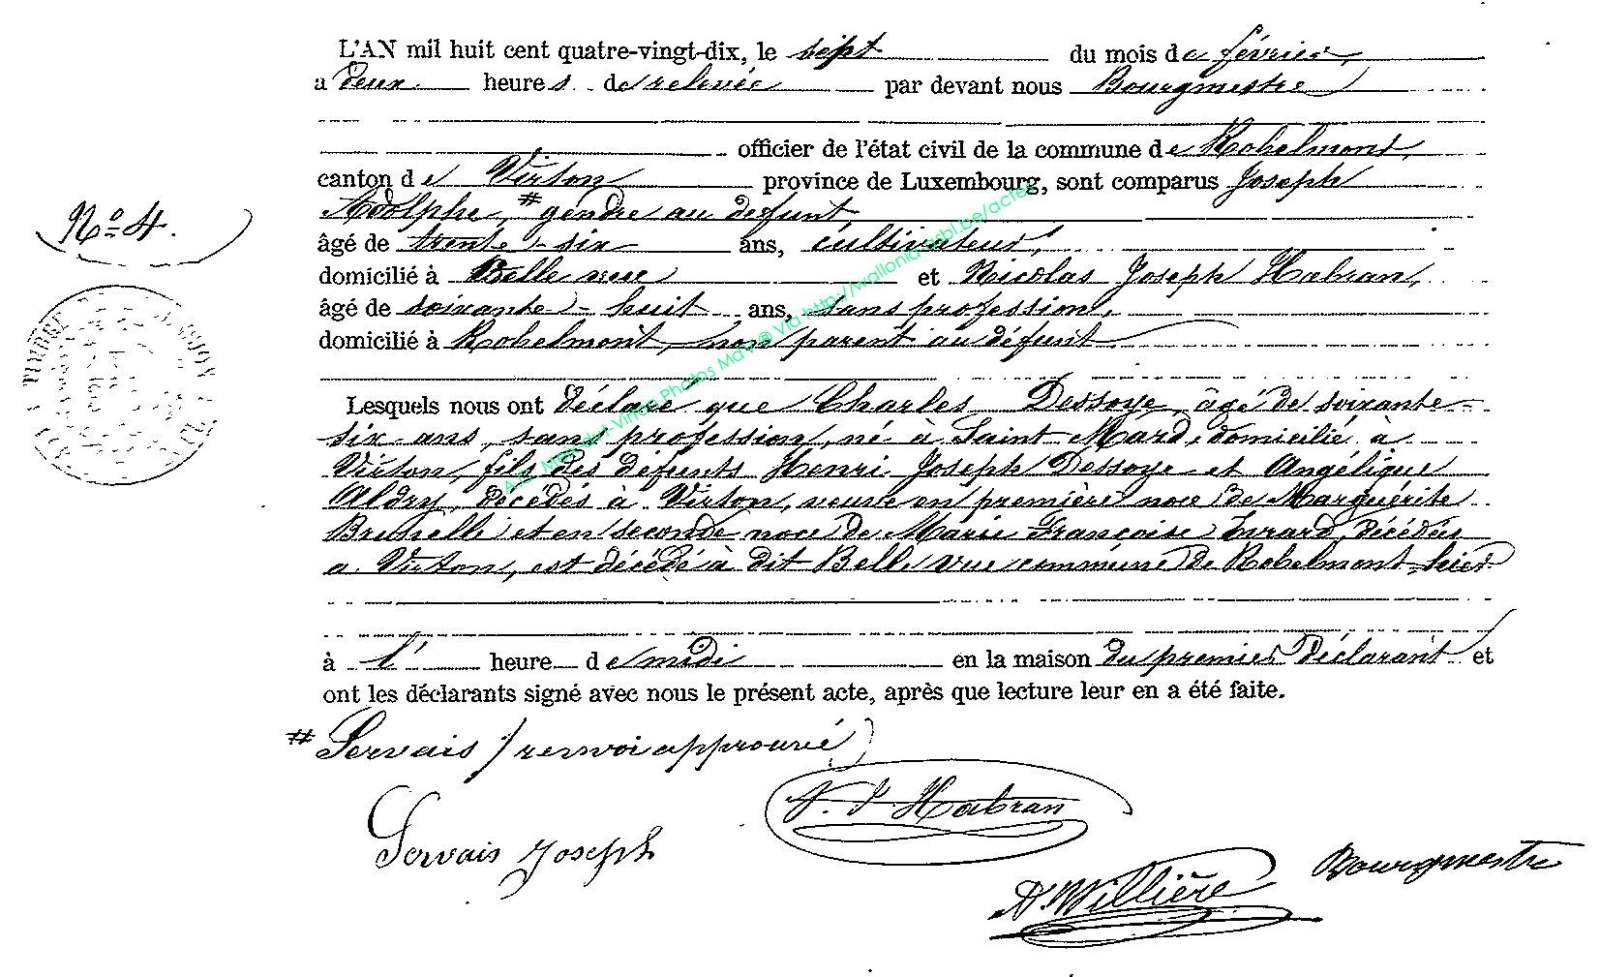 L'AN mil huit cent quatre-vingt-dix, le sept du mois de février,
a deux heures de relevée par devant nous Bourgmestre
officier de l'état civil de la commune de Robelmont,
canton de Virton province de Luxembourg, sont comparus Joseph
Adolphe, # gendre au defunt,
N° 4.
âgé de trente-six ans, cultivateur,
domicilié à Belle vue et Nicolas Joseph Habran,
âgé de soixante-huit ans, sans profession,
domicilié à Robelmont, non parent au défunt
Lesquels nous ont déclaré que Charles Dessoye, âgé de soixante
six ans, sans profession, né à Saint Mard, domicilié à
Virton, fils des défunts Henri Joseph Dessoye et Angélique
Aldry, décédés à Virton, veuve en première noce de Marguérite
et en seconde noce de Marie Françoise Evrard, décédée
a Virton, est décédé à dit Belle vue commune de Robelmont, hier
à 1' heure de midi en la maison du premier déclarant et
ont les déclarants signé avec nous le présent acte, après que lecture leur en a été faite.
# Servais / renvoi approuvé
N. J. Habran
Servais Joseph
Bourgmestre
A. Willière
TIMBRE